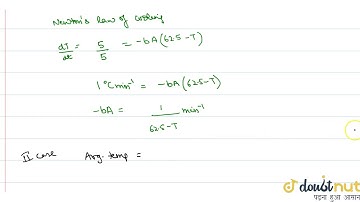 Newton's law of cooling
dT/dt = 5/5 = -bA(62.5-T)
1°C min⁻¹ = -bA(62.5-T)
-bA = 1/(62.5-T) min⁻¹
II case Avg. temp =
doubtnut
पढ़ना हुआ आसान